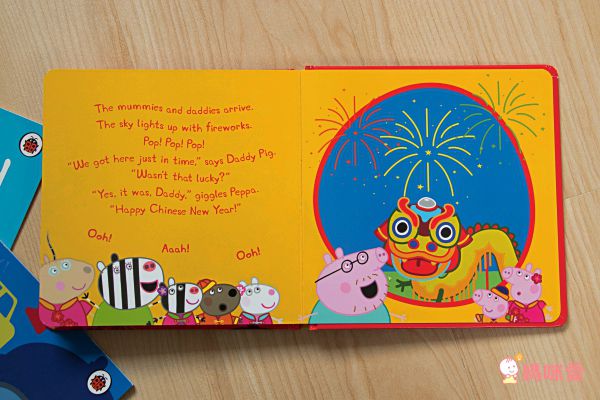 The mummies and daddies arrive.
The sky lights up with fireworks.
Pop! Pop! Pop!
"We got here just in time," says Daddy Pig.
"Wasn't that lucky?"
"Yes, it was, Daddy," giggles Peppa.
"Happy Chinese New Year!"
Ooh!
Aaah!
Ooh!